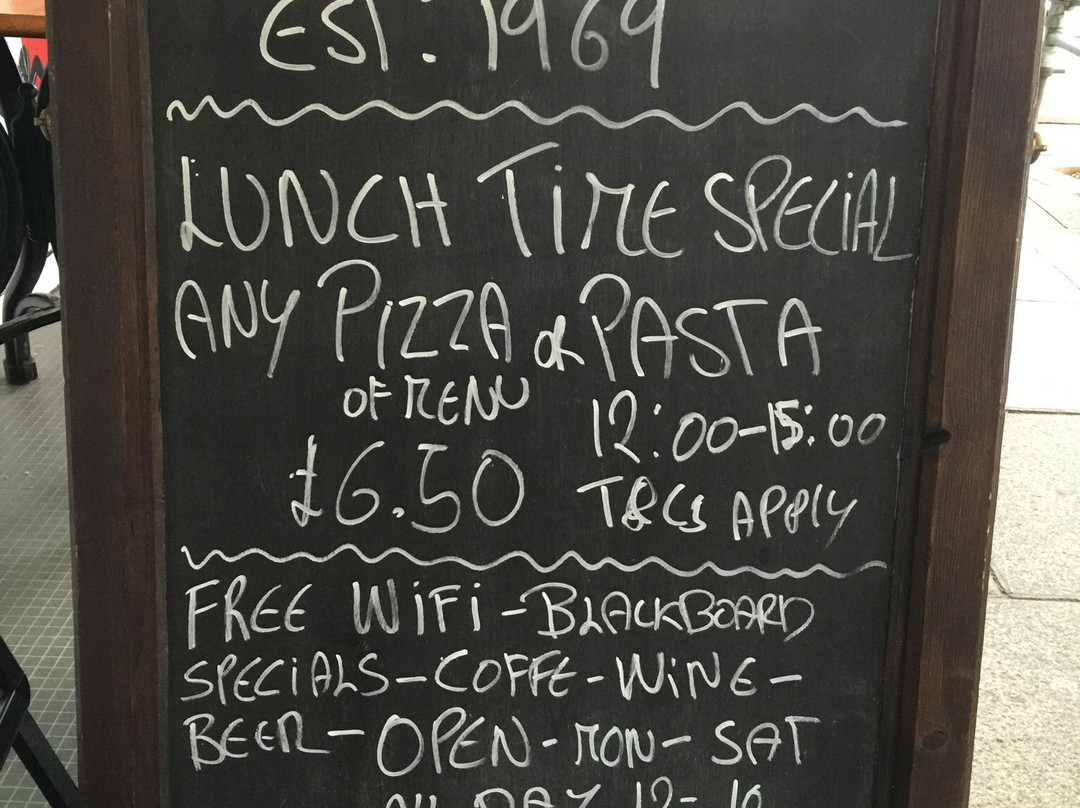 EST: 1969
LUNCH TIME SPECIAL
ANY PIZZA OR PASTA
OF MENU
12:00-15:00
£6.50
T&Cs APPLY
FREE WiFi - BLACKBOARD
SPECIALS - COFFE - WINE -
BEER - OPEN - MON - SAT
ALL DAY 12-10